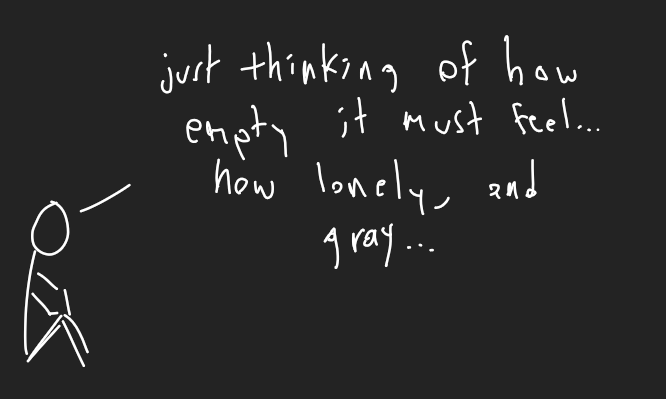 just thinking of how
empty it must feel...
how lonely, and
gray...